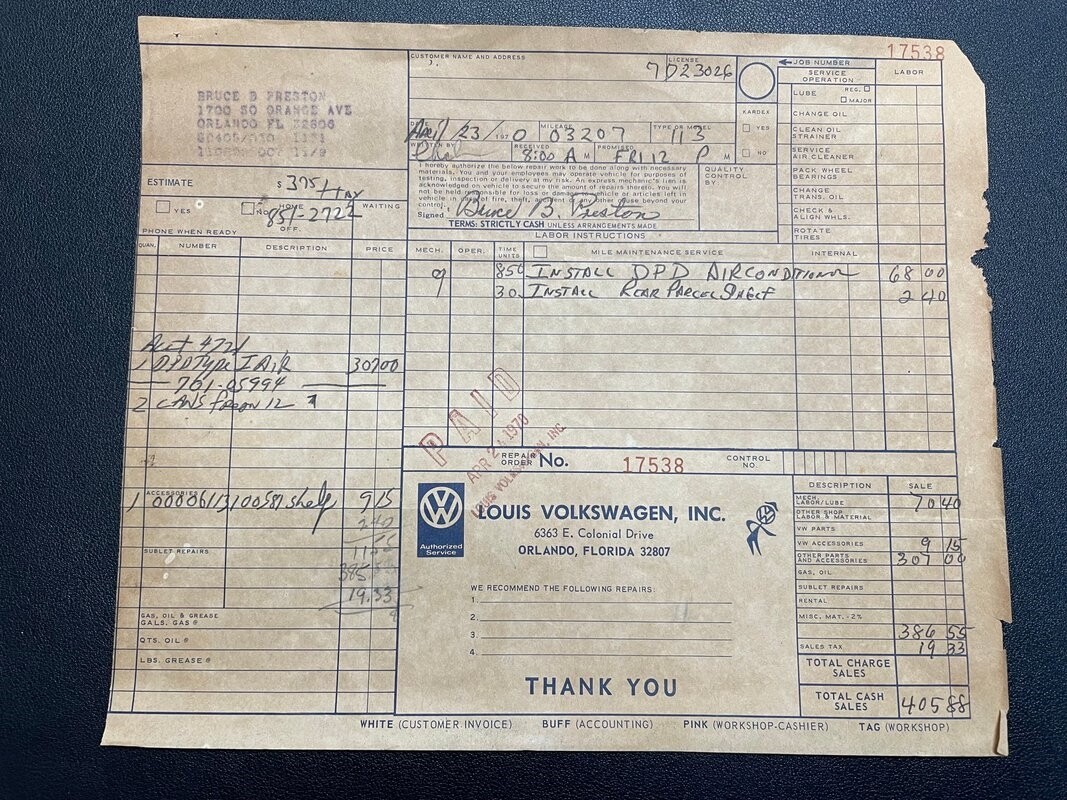 17538
CUSTOMER NAME AND ADDRESS
LICENSE
7D23026
JOB NUMBER
SERVICE OPERATION
LABOR
BRUCE B PRESTON
1700 SO ORANGE AVE
ORLANDO FL 32806
LUBE REG. MAJOR
CHANGE OIL
CLEAN OIL STRAINER
SERVICE AIR CLEANER
PACK WHEEL BEARINGS
CHANGE TRANS. OIL
CHECK & ALIGN WHLS.
ROTATE TIRES
KARDEX
YES
NO
April 23 1970 MILEAGE 03207 TYPE OR MODEL 113
WRITTEN BY RECEIVED 8:00 A M PROMISED FRI 12 P M
I hereby authorize the below repair work to be done along with necessary
materials. You and your employees may operate vehicle for purposes of
testing, inspection or delivery at my risk. An express mechanic's lien is
acknowledged on vehicle to secure the amount of repairs thereto. You will
not be held responsible for loss or damage to vehicle or articles left in
vehicle in case of fire, theft, accident or any other cause beyond your
control.
Signed Bruce B. Preston
TERMS: STRICTLY CASH UNLESS ARRANGEMENTS MADE
QUALITY CONTROL BY
ESTIMATE $ 375 + tax
YES NO HOME OFF. 851-2722 WAITING
PHONE WHEN READY
QUAN. NUMBER DESCRIPTION PRICE
LABOR INSTRUCTIONS
MECH. OPER. TIME UNITS MILE MAINTENANCE SERVICE INTERNAL
9 850 INSTALL DPD AIRCONDITIONER 68 00
30 INSTALL REAR PARCEL SHELF 2 40
Acct 4721
1 DPD TYPE I AIR 307 00
701-05994
2 CANS freon 12
PAID
APR 24 1970
LOUIS VOLKSWAGEN, INC.
REPAIR ORDER No. 17538
CONTROL NO.
ACCESSORIES
1 00006113100587 shelf 9 15
2 40
385
19.33
SUBLET REPAIRS
GAS, OIL & GREASE
GALS. GAS @
QTS. OIL @
LBS. GREASE @
VW
Authorized Service
LOUIS VOLKSWAGEN, INC.
6363 E. Colonial Drive
ORLANDO, FLORIDA 32807
WE RECOMMEND THE FOLLOWING REPAIRS:
1.
2.
3.
4.
THANK YOU
DESCRIPTION SALE
MECH. LABOR/LUBE 70 40
OTHER SHOP LABOR & MATERIAL
VW PARTS
VW ACCESSORIES 9 15
OTHER PARTS AND ACCESSORIES 307 00
GAS, OIL
SUBLET REPAIRS
RENTAL
MISC. MAT. - 2%
386 55
SALES TAX 19 33
TOTAL CHARGE SALES
TOTAL CASH SALES 405 88
WHITE (CUSTOMER INVOICE) BUFF (ACCOUNTING) PINK (WORKSHOP-CASHIER) TAG (WORKSHOP)